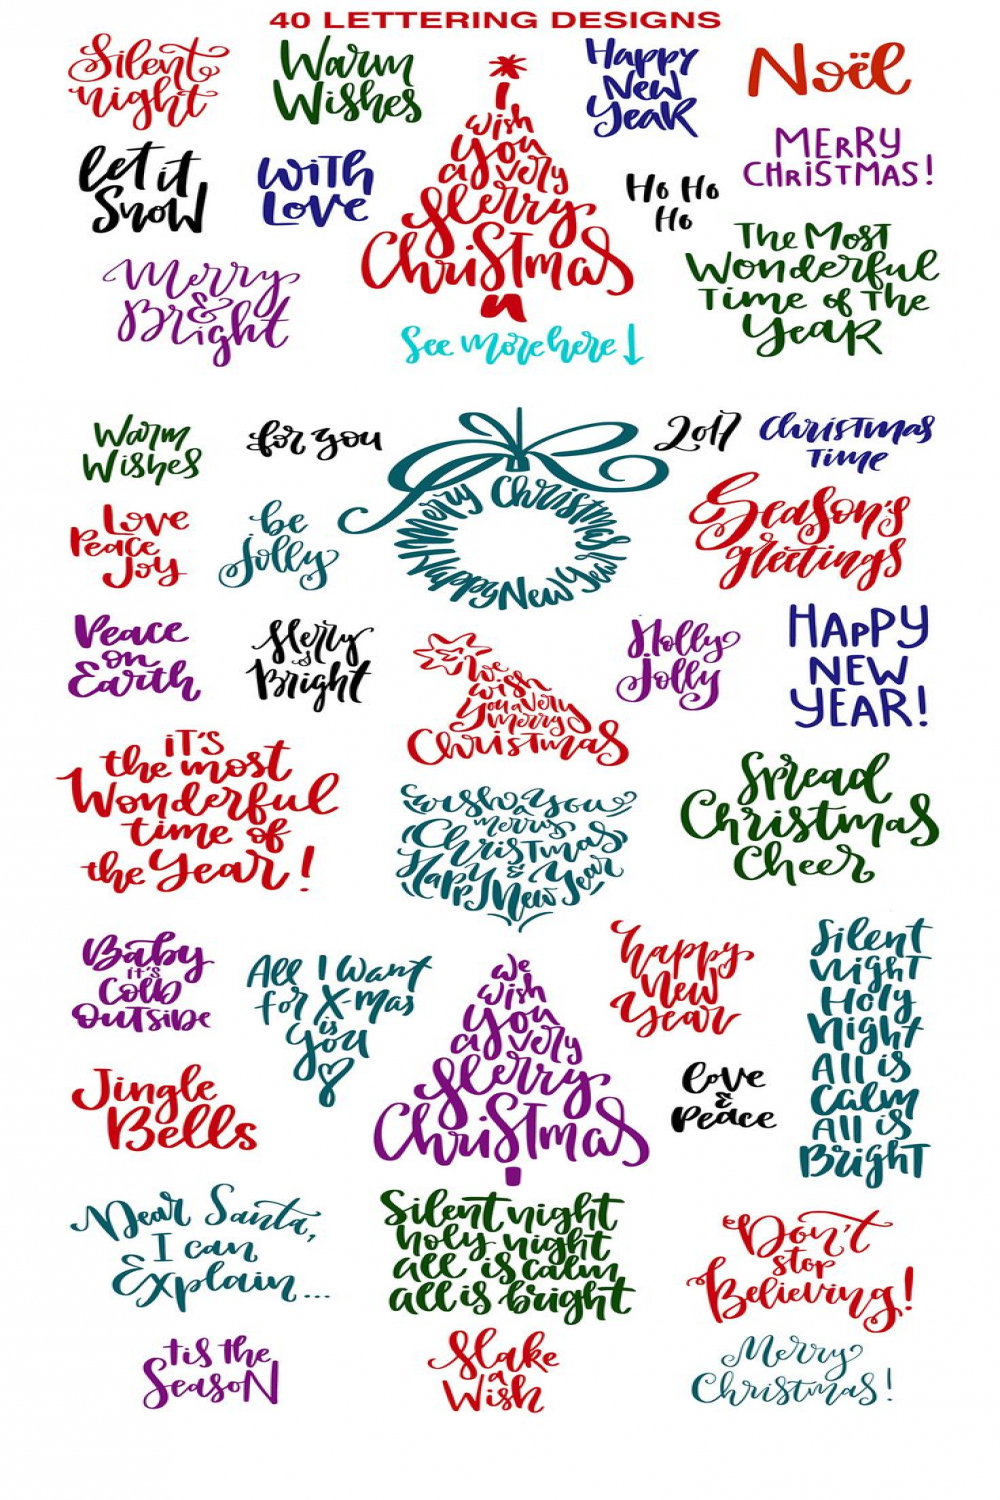 40 LETTERING DESIGNS
Silent
night
Warm
Wishes
I
wish
you
a very
Merry
Christmas
Happy
New
Year
Noël
let it
Snow
with
Love
Ho Ho
Ho
MERRY
CHRISTMAS!
Merry
&
Bright
The Most
Wonderful
Time of The
Year
See more here ↓
Warm
Wishes
for you
Merry Christmas
Happy New Year
2017
Christmas
Time
Love
Peace
Joy
be
jolly
Season's
greetings
Peace
on
Earth
Merry
&
Bright
We
wish
you a very
merry
Christmas
Holly
Jolly
HAPPY
NEW
YEAR!
iT'S
the most
Wonderful
time of
the Year!
wish you
a
merry
Christmas
&
Happy New Year
Spread
Christmas
Cheer
Baby
it's
Cold
Outside
All I Want
for X-mas
is
you
We
wish
you
a very
Merry
Christmas
happy
New
Year
Silent
Night
Holy
Night
All is
Calm
All is
Bright
Jingle
Bells
love
&
Peace
Dear Santa,
I can
Explain...
Silent night
holy night
all is calm
all is bright
Don't
stop
Believing!
tis the
Season
Make
a
Wish
Merry
Christmas!